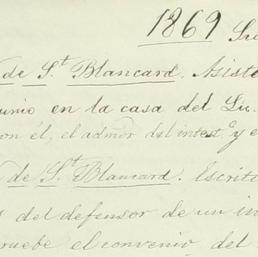 1869
de S.t Blancard. Asiste
unio en la casa del Lic.
con él, el admor del intest.o y e
de S.t Blancard. Escrit
del defensor de un in
ruebe el convenio, del